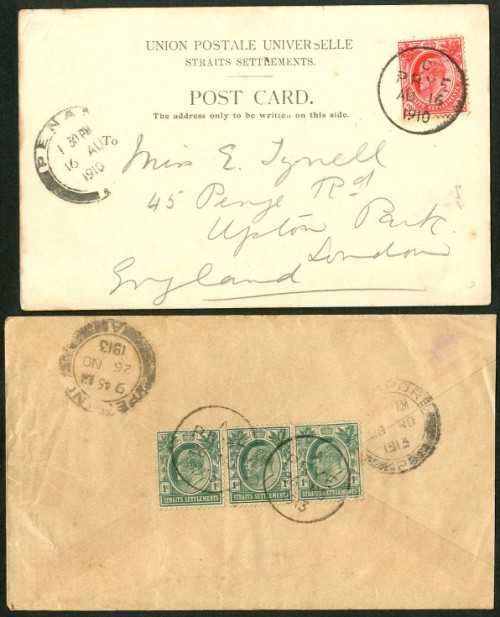 UNION POSTALE UNIVERSELLE
STRAITS SETTLEMENTS.
POST CARD.
The address only to be written on this side.
1910
PENA
1 30 PM
16 AU
1910
Miss E. Tyrell
45 Penge Rd
Upton Park
London
England
1913
26 NO
9 45
PORE
NO
1913
1c 1c 1c 1c
STRAITS SETTLEMENTS STRAITS SETTLEMENTS STRAITS SETTLEMENTS